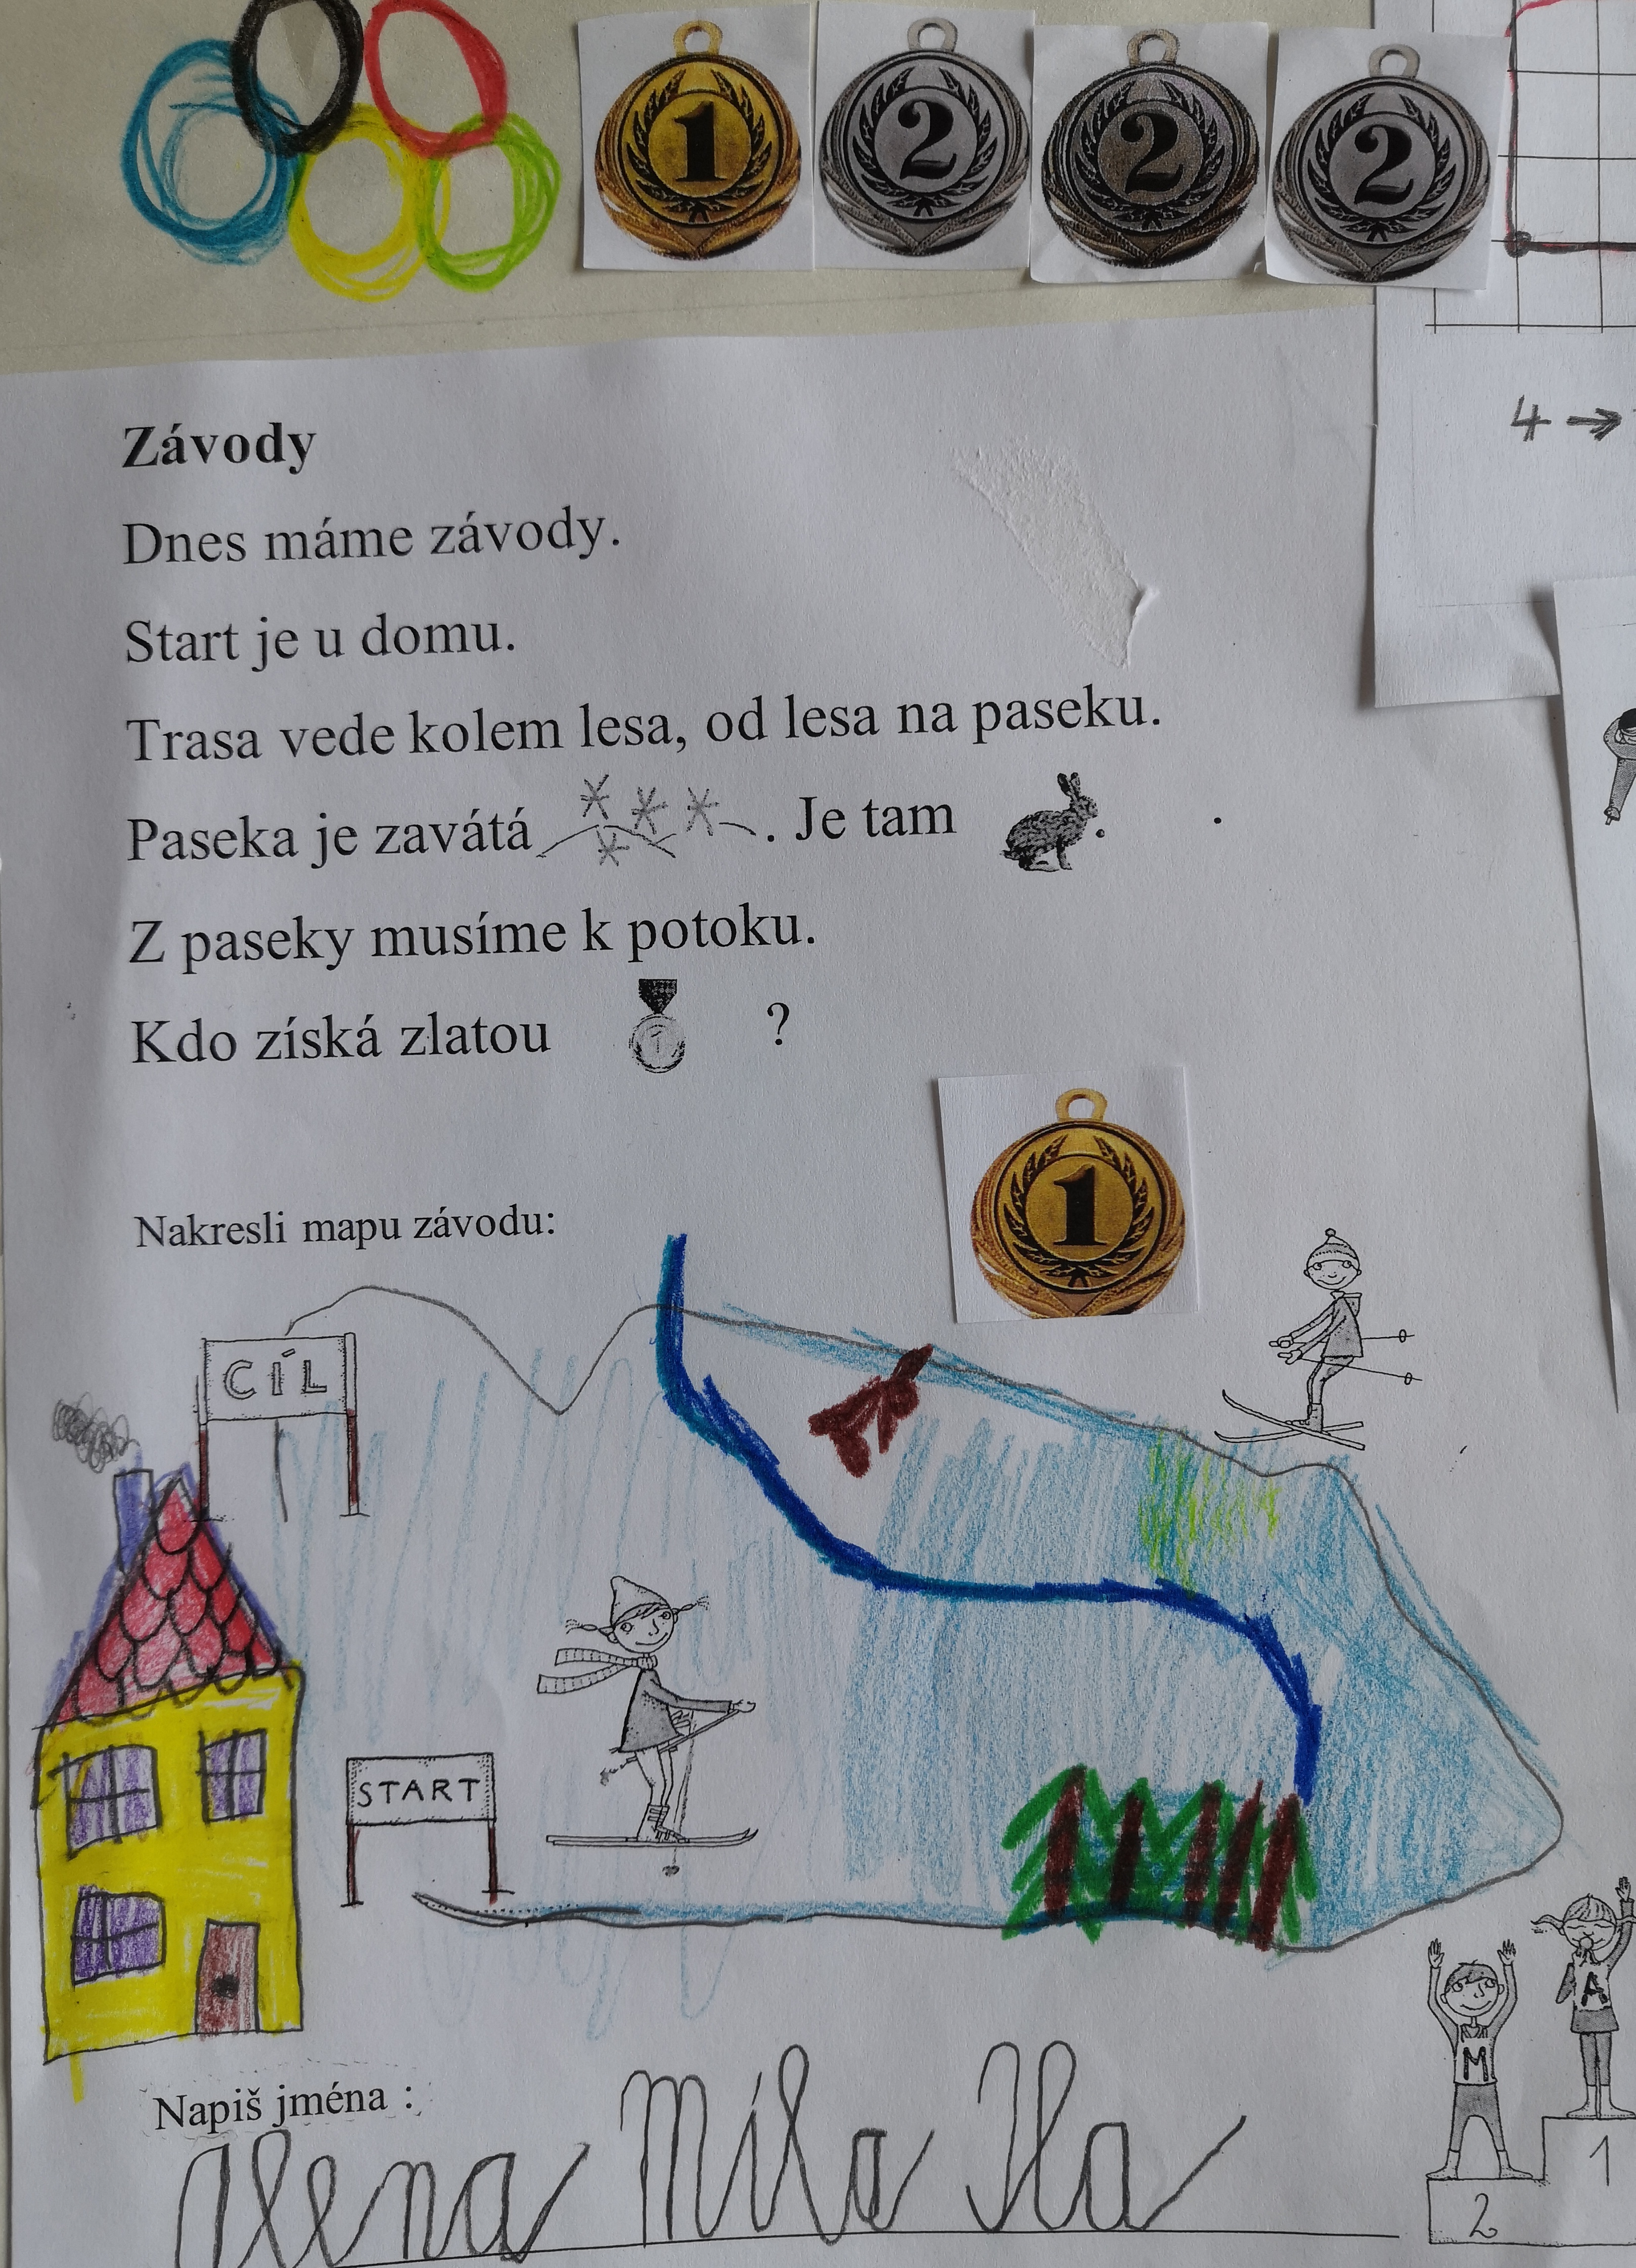 1 2 2 2
4 →
Závody
Dnes máme závody.
Start je u domu.
Trasa vede kolem lesa, od lesa na paseku.
Paseka je zavátá . Je tam .
Z paseky musíme k potoku.
Kdo získá zlatou 1 ?
1
Nakresli mapu závodu:
CÍL
START
Napiš jména :
Alena Míla Ila
M A
2 1